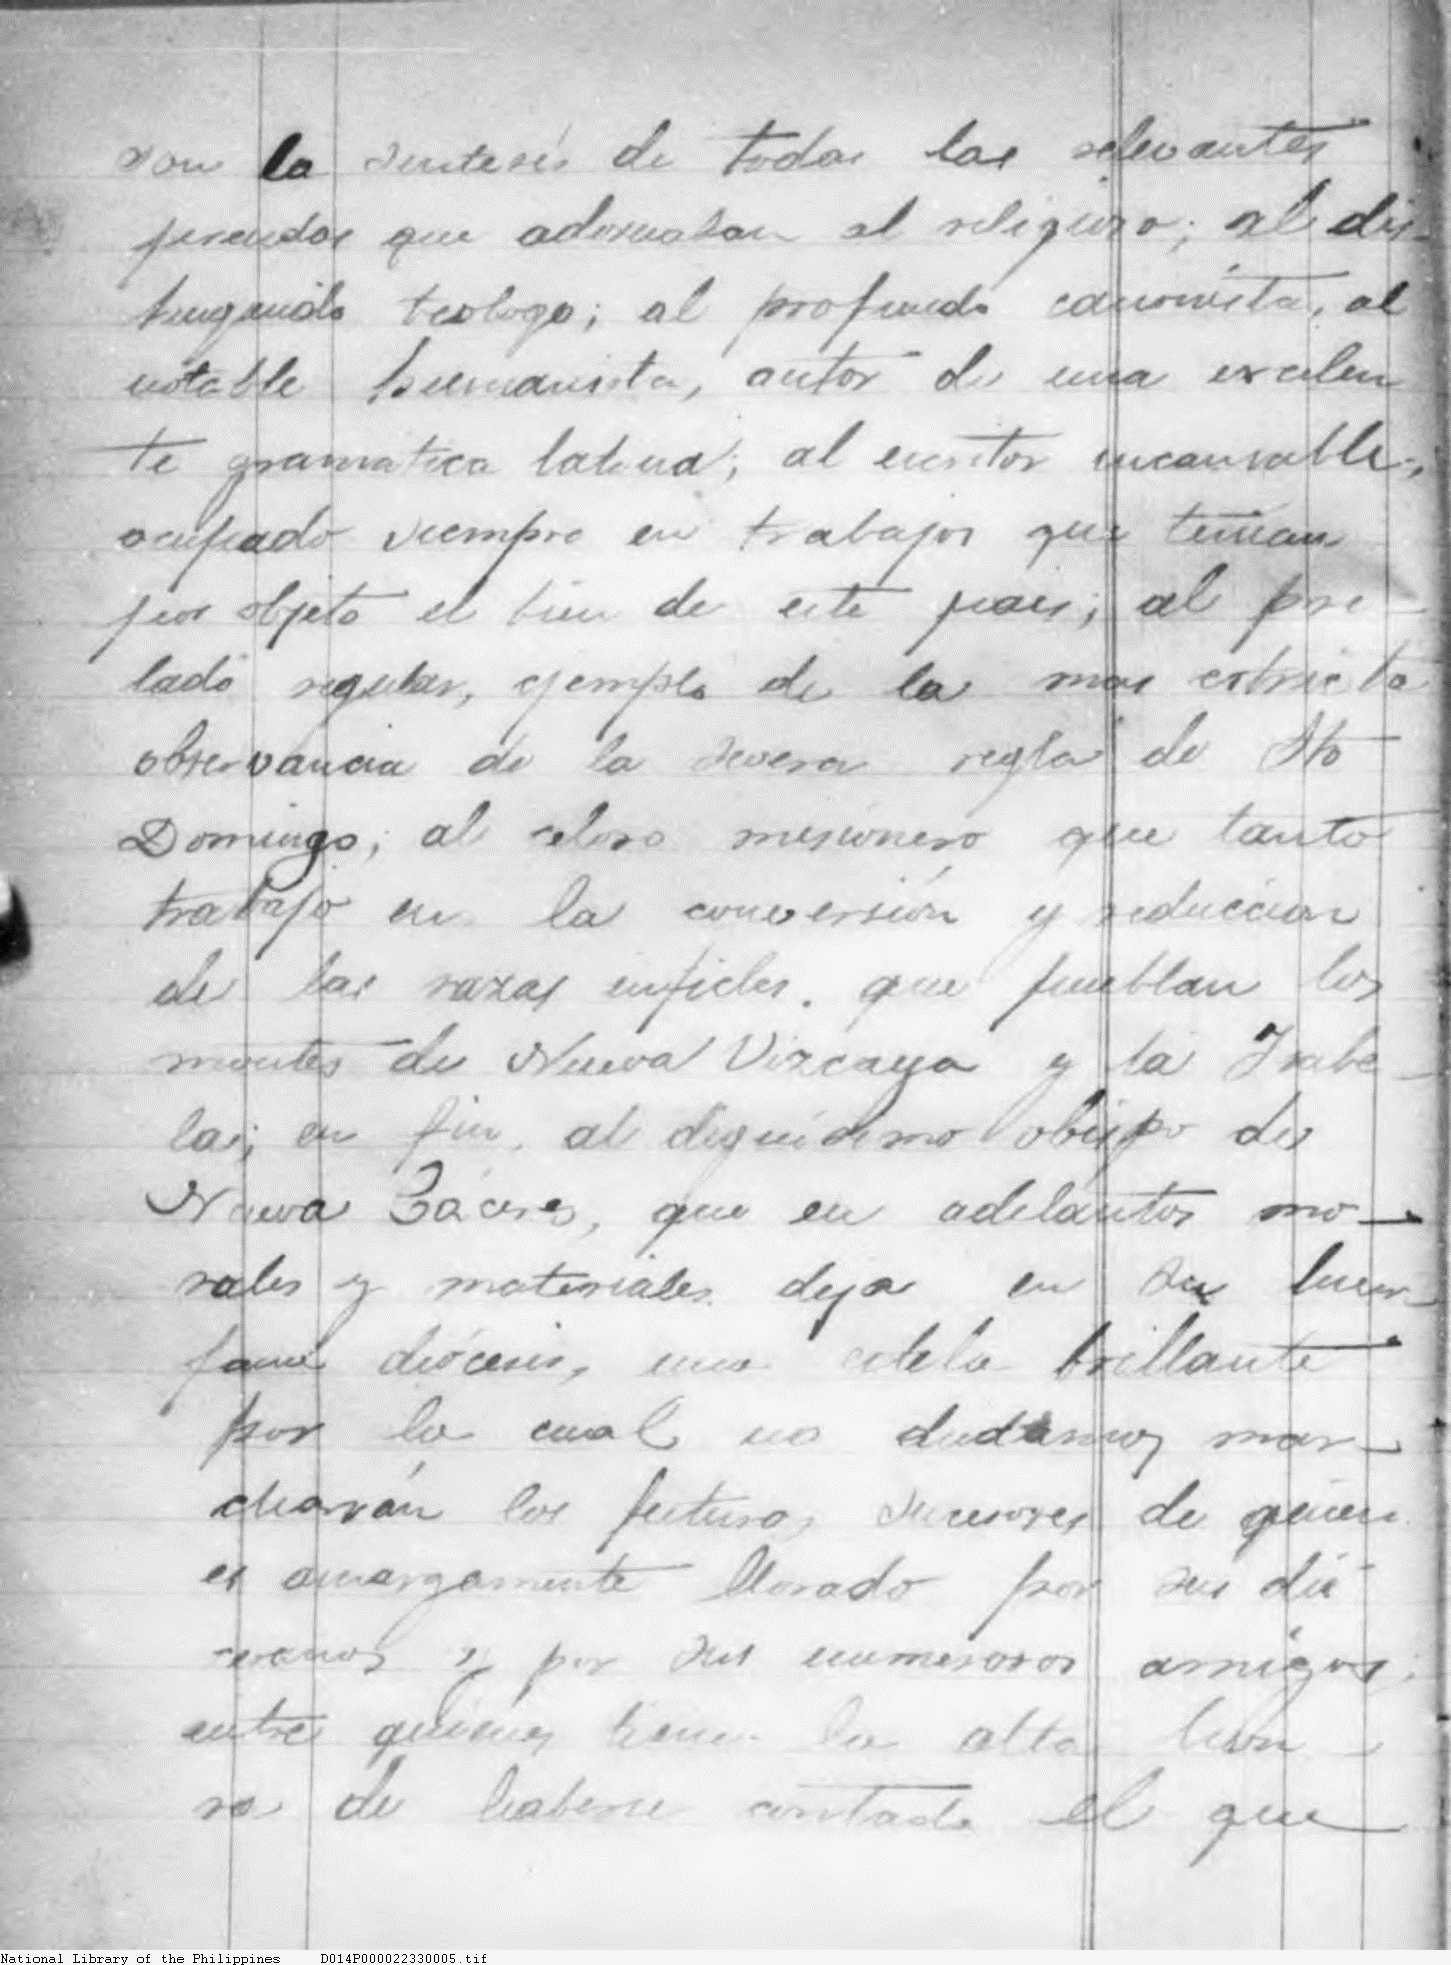 son la sintesis de todas las relevantes
prendas que adornaban al religioso; al dis-
tinguido teologo; al profundo canonista, al
notable humanista, autor de una excelen
te gramatica latina; al escritor incansable,
ocupado siempre en trabajos que tenian
por objeto el bien de este pais; al pre-
lado regular, ejemplo de la mas estricta
observancia de la severa regla de Sto
Domingo; al celoso misionero que tanto
trabajó en la conversión y reduccion
de las razas infieles. que pueblan los
montes de Nueva Vizcaya y la Isabe-
la; en fin, al dignisimo obispo de
Nueva Cáceres, que en adelantos mo-
rales y materiales deja en su huer-
fana diócesis, una estela brillante
por la cual no dudamos mar-
charán los futuros sucesores de quien
es amargamente llorado por sus dio
cesanos y por sus numerosos amigos;
entre quienes tiene la alta hon-
ra de haberse contado el que
National Library of the Philippines D014P000022330005.tif